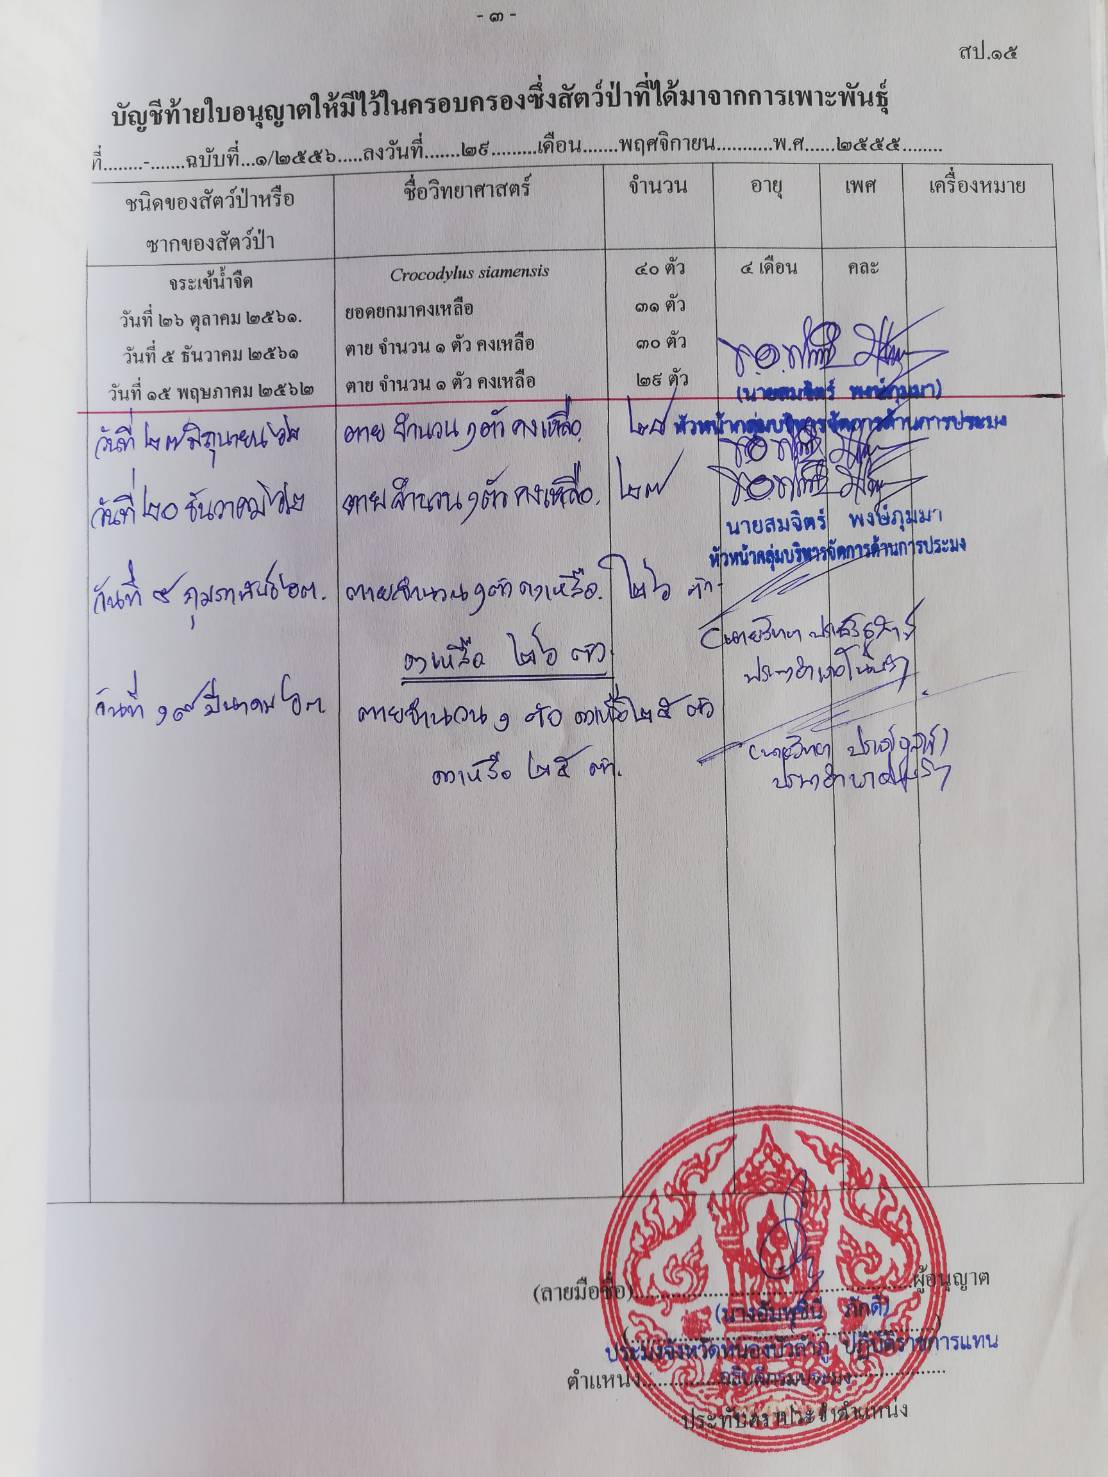 - ๓ -
สป.๑๕
บัญชีท้ายใบอนุญาตให้มีไว้ในครอบครองซึ่งสัตว์ป่าที่ได้มาจากการเพาะพันธุ์
ที่........-.......ฉบับที่...๑/๒๕๕๖.....ลงวันที่.......๒๙.........เดือน.......พฤศจิกายน...........พ.ศ......๒๕๕๕........
ชนิดของสัตว์ป่าหรือ ชื่อวิทยาศาสตร์ จำนวน อายุ เพศ เครื่องหมาย
ซากของสัตว์ป่า
จระเข้น้ำจืด Crocodylus siamensis ๔๐ ตัว ๔ เดือน คละ
วันที่ ๒๖ ตุลาคม ๒๕๖๑. ยอดยกมาคงเหลือ ๓๑ ตัว
วันที่ ๕ ธันวาคม ๒๕๖๑ ตาย จำนวน ๑ ตัว คงเหลือ ๓๐ ตัว
วันที่ ๑๕ พฤษภาคม ๒๕๖๒ ตาย จำนวน ๑ ตัว คงเหลือ ๒๙ ตัว
(นายสมจิตร์ พงษ์ภุมมา)
หัวหน้ากลุ่มบริหารจัดการด้านการประมง
วันที่ ๒๗ มิถุนายน ๖๒ ตาย จำนวน ๑ ตัว คงเหลือ ๒๘
วันที่ ๒๐ ธันวาคม ๖๒ ตาย จำนวน ๑ ตัว คงเหลือ. ๒๗
นายสมจิตร์ พงษ์ภุมมา
หัวหน้ากลุ่มบริหารจัดการด้านการประมง
วันที่ ๕ กุมภาพันธ์ ๖๓. ตายจำนวน ๑ ตัว คงเหลือ. ๒๖ ตัว
คงเหลือ ๒๖ ตัว
วันที่ ๑๙ มีนาคม ๖๓ ตายจำนวน ๑ ตัว คงเหลือ ๒๕ ตัว
คงเหลือ ๒๕ ตัว.
(ลายมือชื่อ)..................ผู้อนุญาต
(นางอัมพุชินี ภักดี)
ประมงจังหวัดหนองบัวลำภู ปฏิบัติราชการแทน
ตำแหน่ง............อธิบดีกรมประมง..............
ประทับตราประจำตำแหน่ง